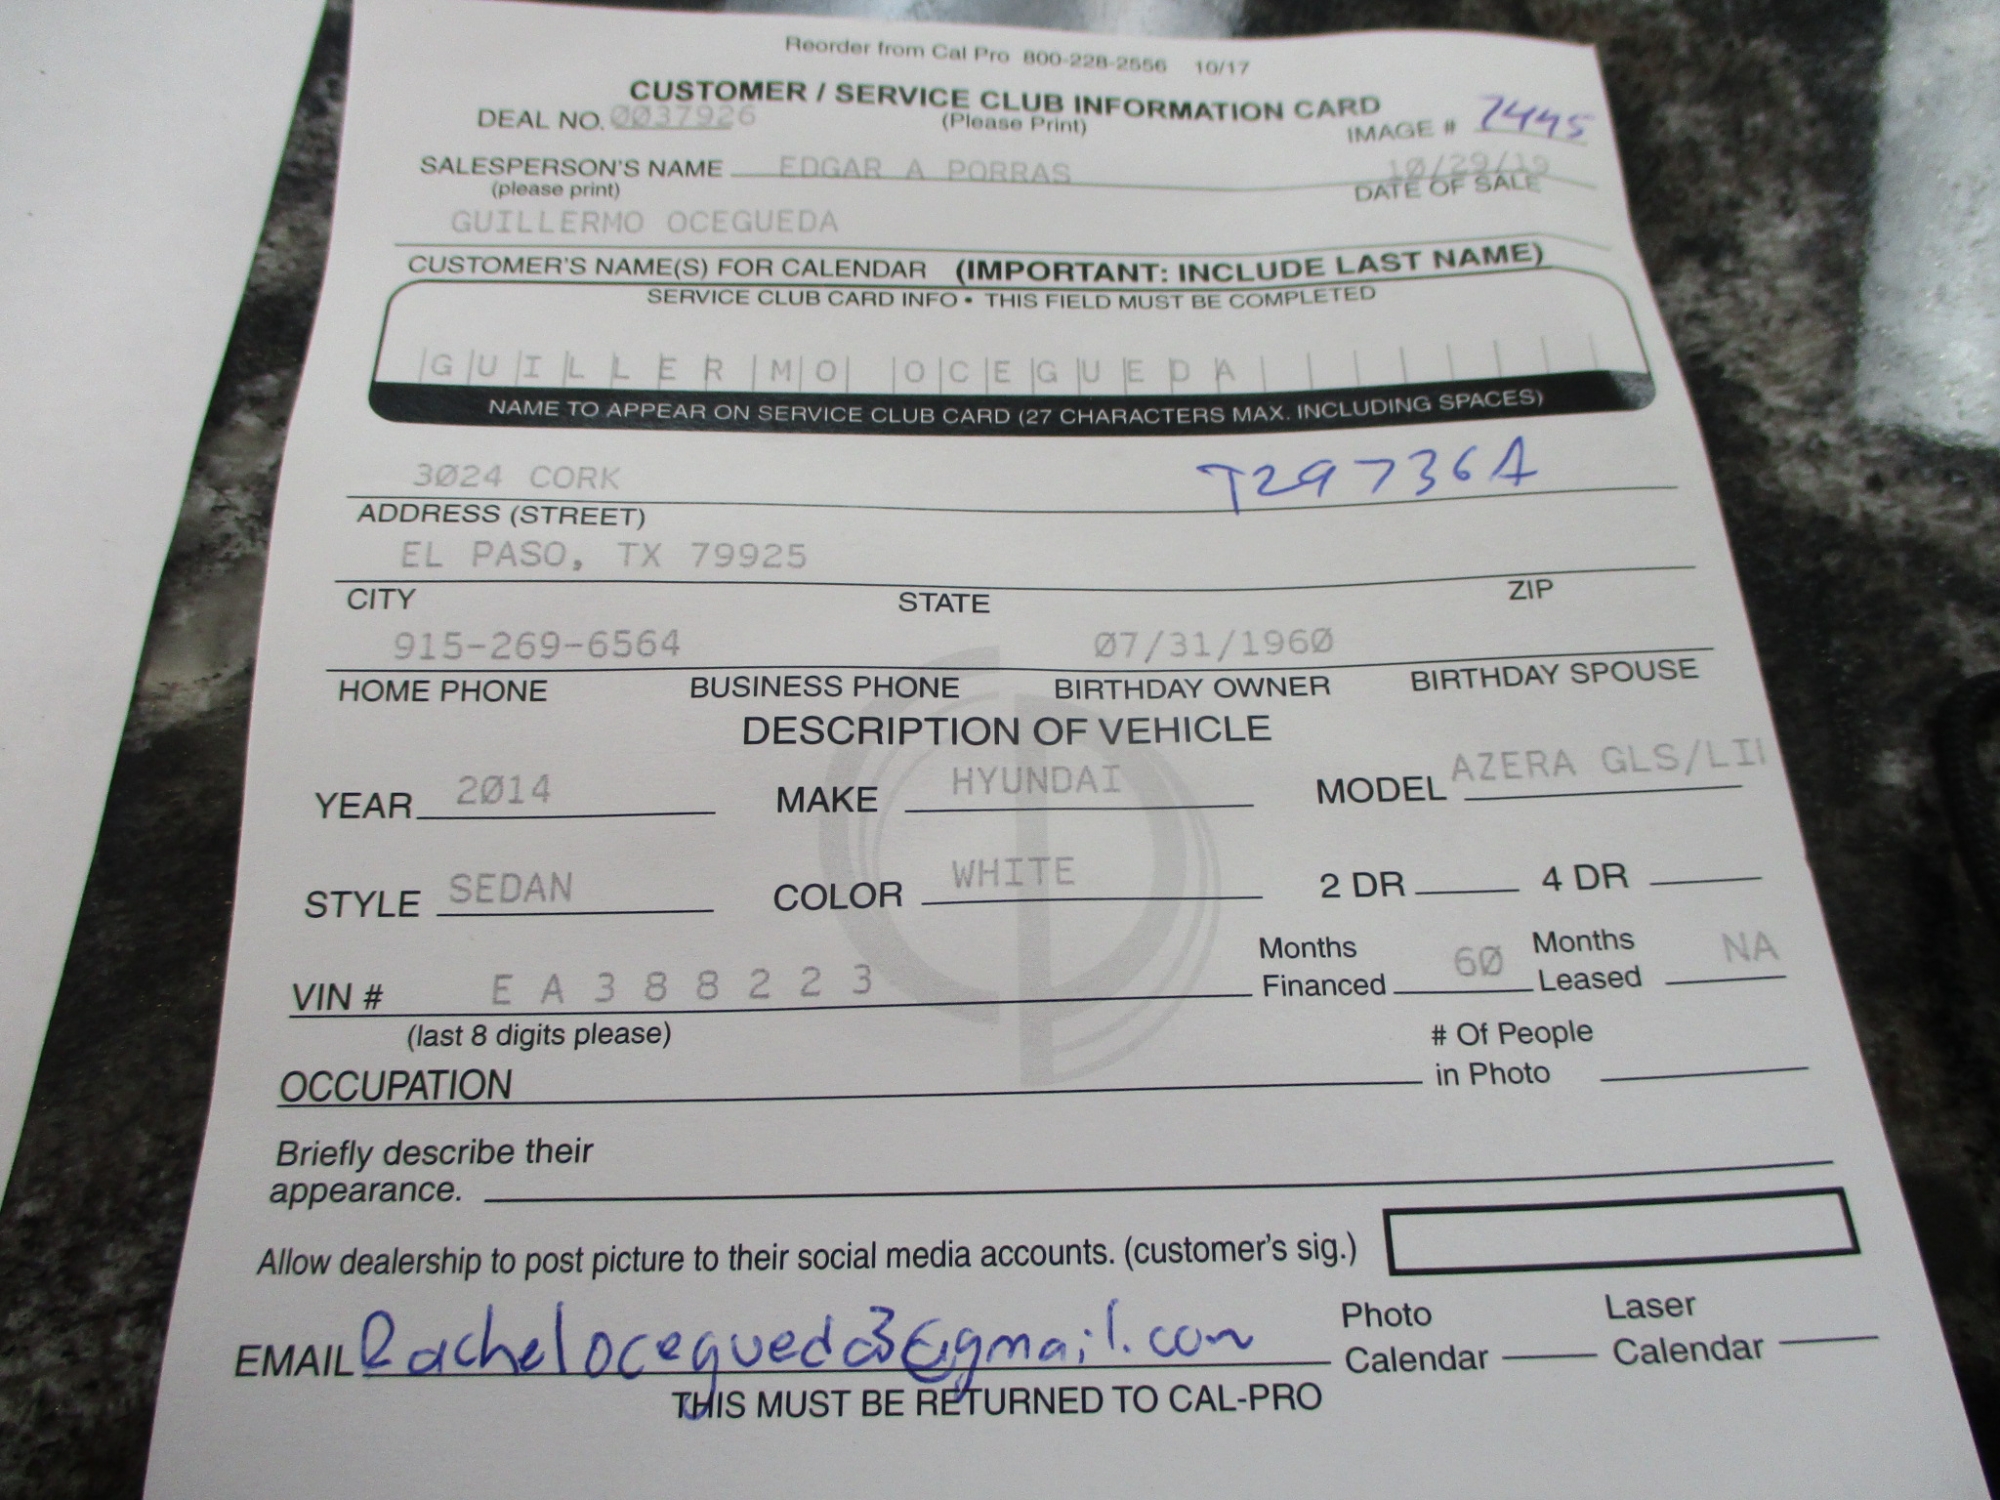 Reorder from Cal Pro 800-228-2556 10/17
CUSTOMER / SERVICE CLUB INFORMATION CARD
DEAL NO. 0037926 (Please Print) IMAGE # 7445
SALESPERSON'S NAME EDGAR A PORRAS 10/29/19
(please print) DATE OF SALE
GUILLERMO OCEGUEDA
CUSTOMER'S NAME(S) FOR CALENDAR (IMPORTANT: INCLUDE LAST NAME)
SERVICE CLUB CARD INFO • THIS FIELD MUST BE COMPLETED
GUILLERMO OCEGUEDA
NAME TO APPEAR ON SERVICE CLUB CARD (27 CHARACTERS MAX. INCLUDING SPACES)
3024 CORK T29736A
ADDRESS (STREET)
EL PASO, TX 79925
CITY STATE ZIP
915-269-6564 07/31/1960
HOME PHONE BUSINESS PHONE BIRTHDAY OWNER BIRTHDAY SPOUSE
DESCRIPTION OF VEHICLE
YEAR 2014 MAKE HYUNDAI MODEL AZERA GLS/LI
STYLE SEDAN COLOR WHITE 2 DR 4 DR
Months Months
VIN # E A 3 8 8 2 2 3 Financed 60 Leased NA
(last 8 digits please) # Of People
OCCUPATION in Photo
Briefly describe their
appearance.
Allow dealership to post picture to their social media accounts. (customer's sig.)
Photo Laser
EMAIL Rachelocegueda3@gmail.com Calendar Calendar
THIS MUST BE RETURNED TO CAL-PRO